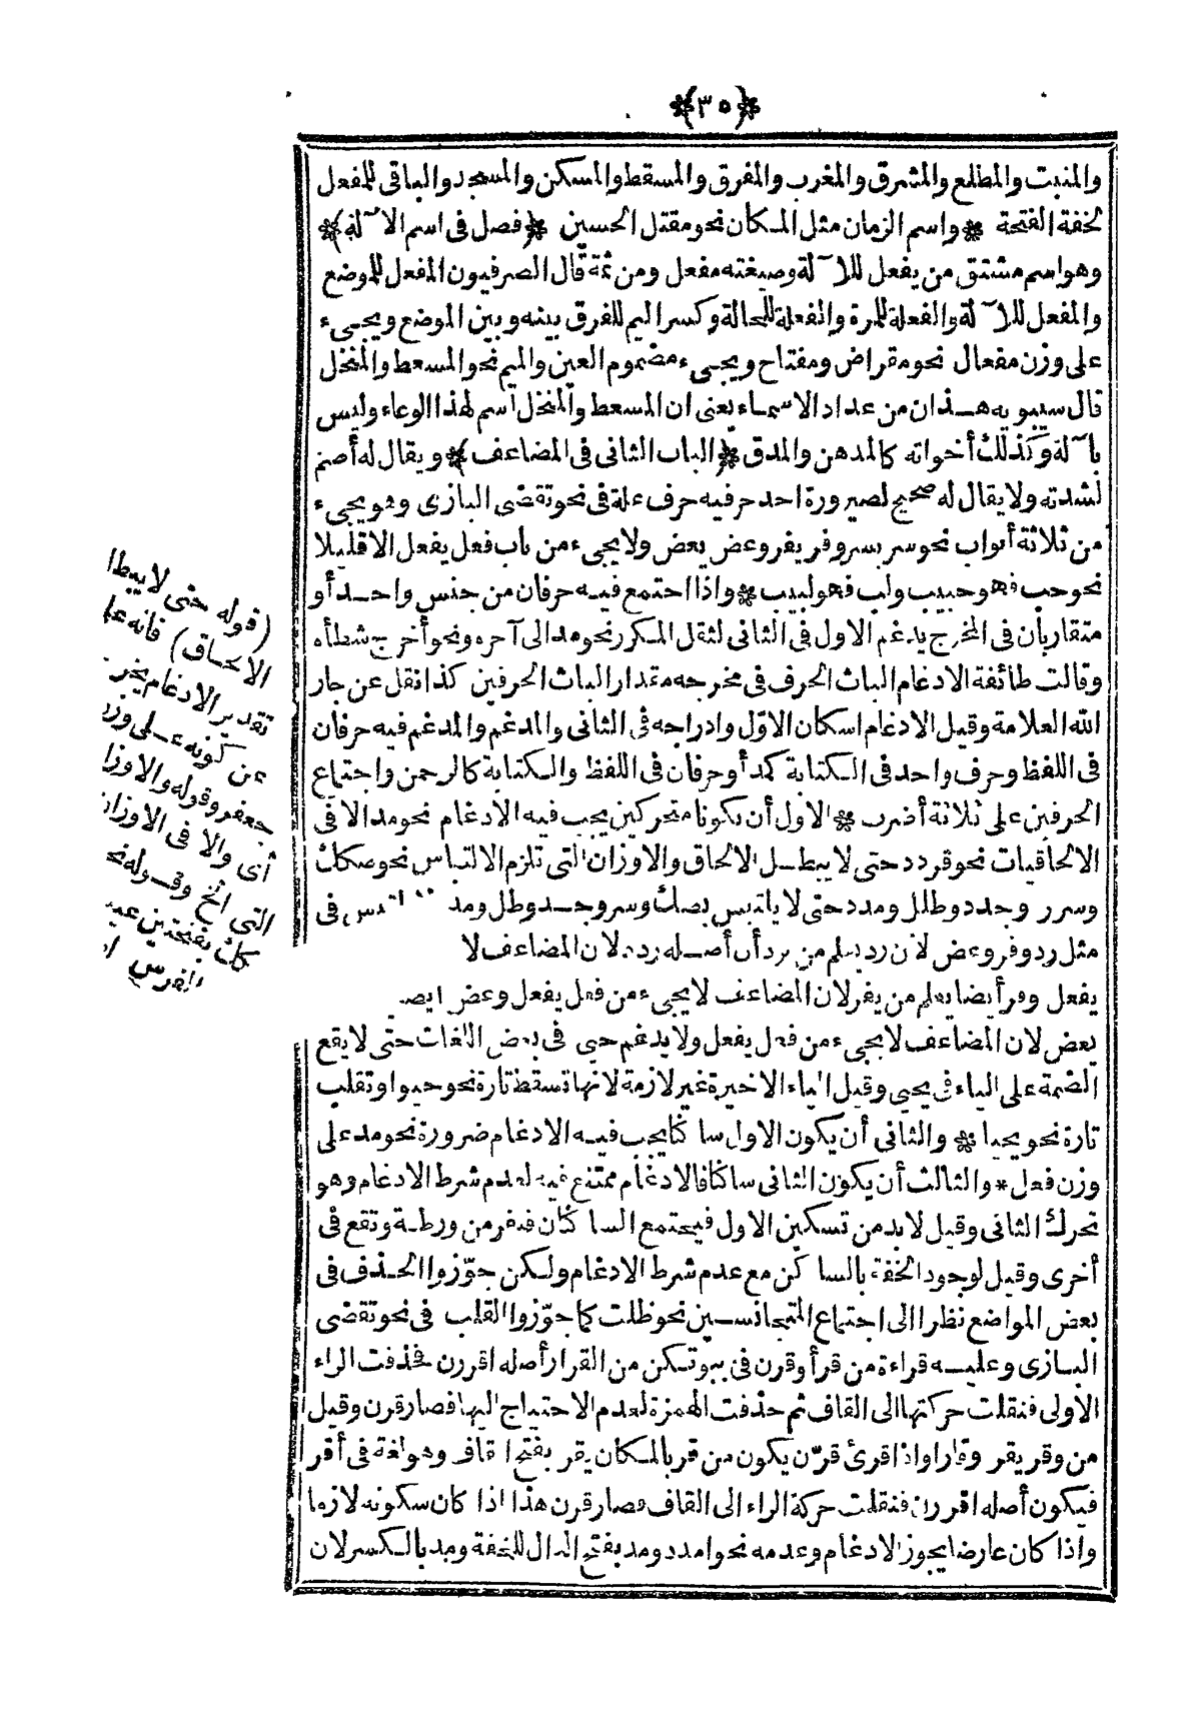 ﴿٣٥﴾
والمنبت والمطلع والمشرق والمغرب والمفرق والمسقط والمسكن والمسجد والباقى للمفعل
لخفة الفتحة * واسم الزمان مثل المكان نحو مقتل الحسين ﴿فصل فى اسم الآلة﴾
وهو اسم مشتق من يفعل للآلة وصيغته مفعل ومن ثمة قال الصرفيون المفعل للموضع
والمفعل للآلة والفعلة للمرة والفعلة للحالة وكسر الميم للفرق بينه وبين الموضع ويجىء
على وزن مفعال نحو مقراض ومفتاح ويجىء مضموم العين والميم نحو المسعط والمنخل
قال سيبويه هذان من عداد الاسماء يعنى ان المسعط والمنخل اسم لهذا الوعاء وليس
بآلة وكذلك أخواته كالمدهن والمدق ﴿الباب الثانى فى المضاعف﴾ ويقال له أصم
لشدته ولا يقال له صحيح لصيرورة احد حرفيه حرف علة فى نحو تقضى البازى وهو يجىء
من ثلاثة أبواب نحو سر يسر وفر يفر وعض يعض ولا يجىء من باب فعل يفعل الا قليلا
نحو حب فهو حبيب ولب فهو لبيب * واذا اجتمع فيه حرفان من جنس واحد أو
متقاربان فى المخرج يدغم الاول فى الثانى لثقل المكرر نحو مد الى آخره ونحو أخرج شطأه
وقالت طائفة الادغام الباث الحرف فى مخرجه مقدار الباث الحرفين كذا نقل عن جار
الله العلامة وقيل الادغام اسكان الاوّل وادراجه فى الثانى والمدغم والمدغم فيه حرفان
فى اللفظ وحرف واحد فى الكتابة كمد أو حرفان فى اللفظ والكتابة كالرحمن واجتماع
الحرفين على ثلاثة أضرب * الاول أن يكونا متحركين يجب فيه الادغام نحو مد الا فى
الالحاقيات نحو قردد حتى لا يبطل الالحاق والاوزان التى تلزم الالتباس نحو صكك
وسرر وجدد وطلل ومدد حتى لا يلتبس بصك وسر وجد وطل ومد فى
مثل رد وفر وعض لان رد يعلم من يرد أن أصله ردد لان المضاعف لا
يفعل وفر أيضا يعلم من يفر لان المضاعف لا يجىء من فعل يفعل وعض
يعض لان المضاعف لا يجىء من فعل يفعل ولا يدغم حيى فى بعض اللغات حتى لا يقع
الضمة على الياء فى يحيى وقيل الياء الاخيرة غير لازمة لانها تسقط تارة نحو حيوا وتقلب
تارة نحو يحيا * والثانى أن يكون الاول ساكنا يجب فيه الادغام ضرورة نحو مد على
وزن فعل * والثالث أن يكون الثانى ساكنا فالادغام ممتنع فيه لعدم شرط الادغام وهو
تحرك الثانى وقيل لا بد من تسكين الاول فيجتمع الساكنان فتفر من ورطة وتقع فى
أخرى وقيل لوجود الخفة بالساكن مع عدم شرط الادغام ولكن جوّزوا الحذف فى
بعض المواضع نظرا الى اجتماع المتجانسين نحو ظلت كما جوّزوا القلب فى نحو تقضى
البازى وعليه قراءة من قرأ وقرن فى بيوتكن من القرار أصله اقررن فحذفت الراء
الاولى فنقلت حركتها الى القاف ثم حذفت الهمزة لعدم الاحتياج اليها فصار قرن وقيل
من وقر يقر وقارا واذا قرئ قرّن يكون من قر بالمكان يقر بفتح القاف وهو لغة فى أقر
فيكون أصله اقررن فنقلت حركة الراء الى القاف فصار قرن هذا اذا كان سكونه لازما
واذا كان عارضا يجوز الادغام وعدمه نحو امدد ومد بفتح الدال للخفة ومد بالكسر لان
(قوله حتى لا يبطل
الالحاق) فانه على
تقدير الادغام يخرج
عن كونه على وزن
جعفر وقوله والاوزان
أى والا فى الاوزان
التى الخ وقوله نحو
كك بفتحتين
الفرس